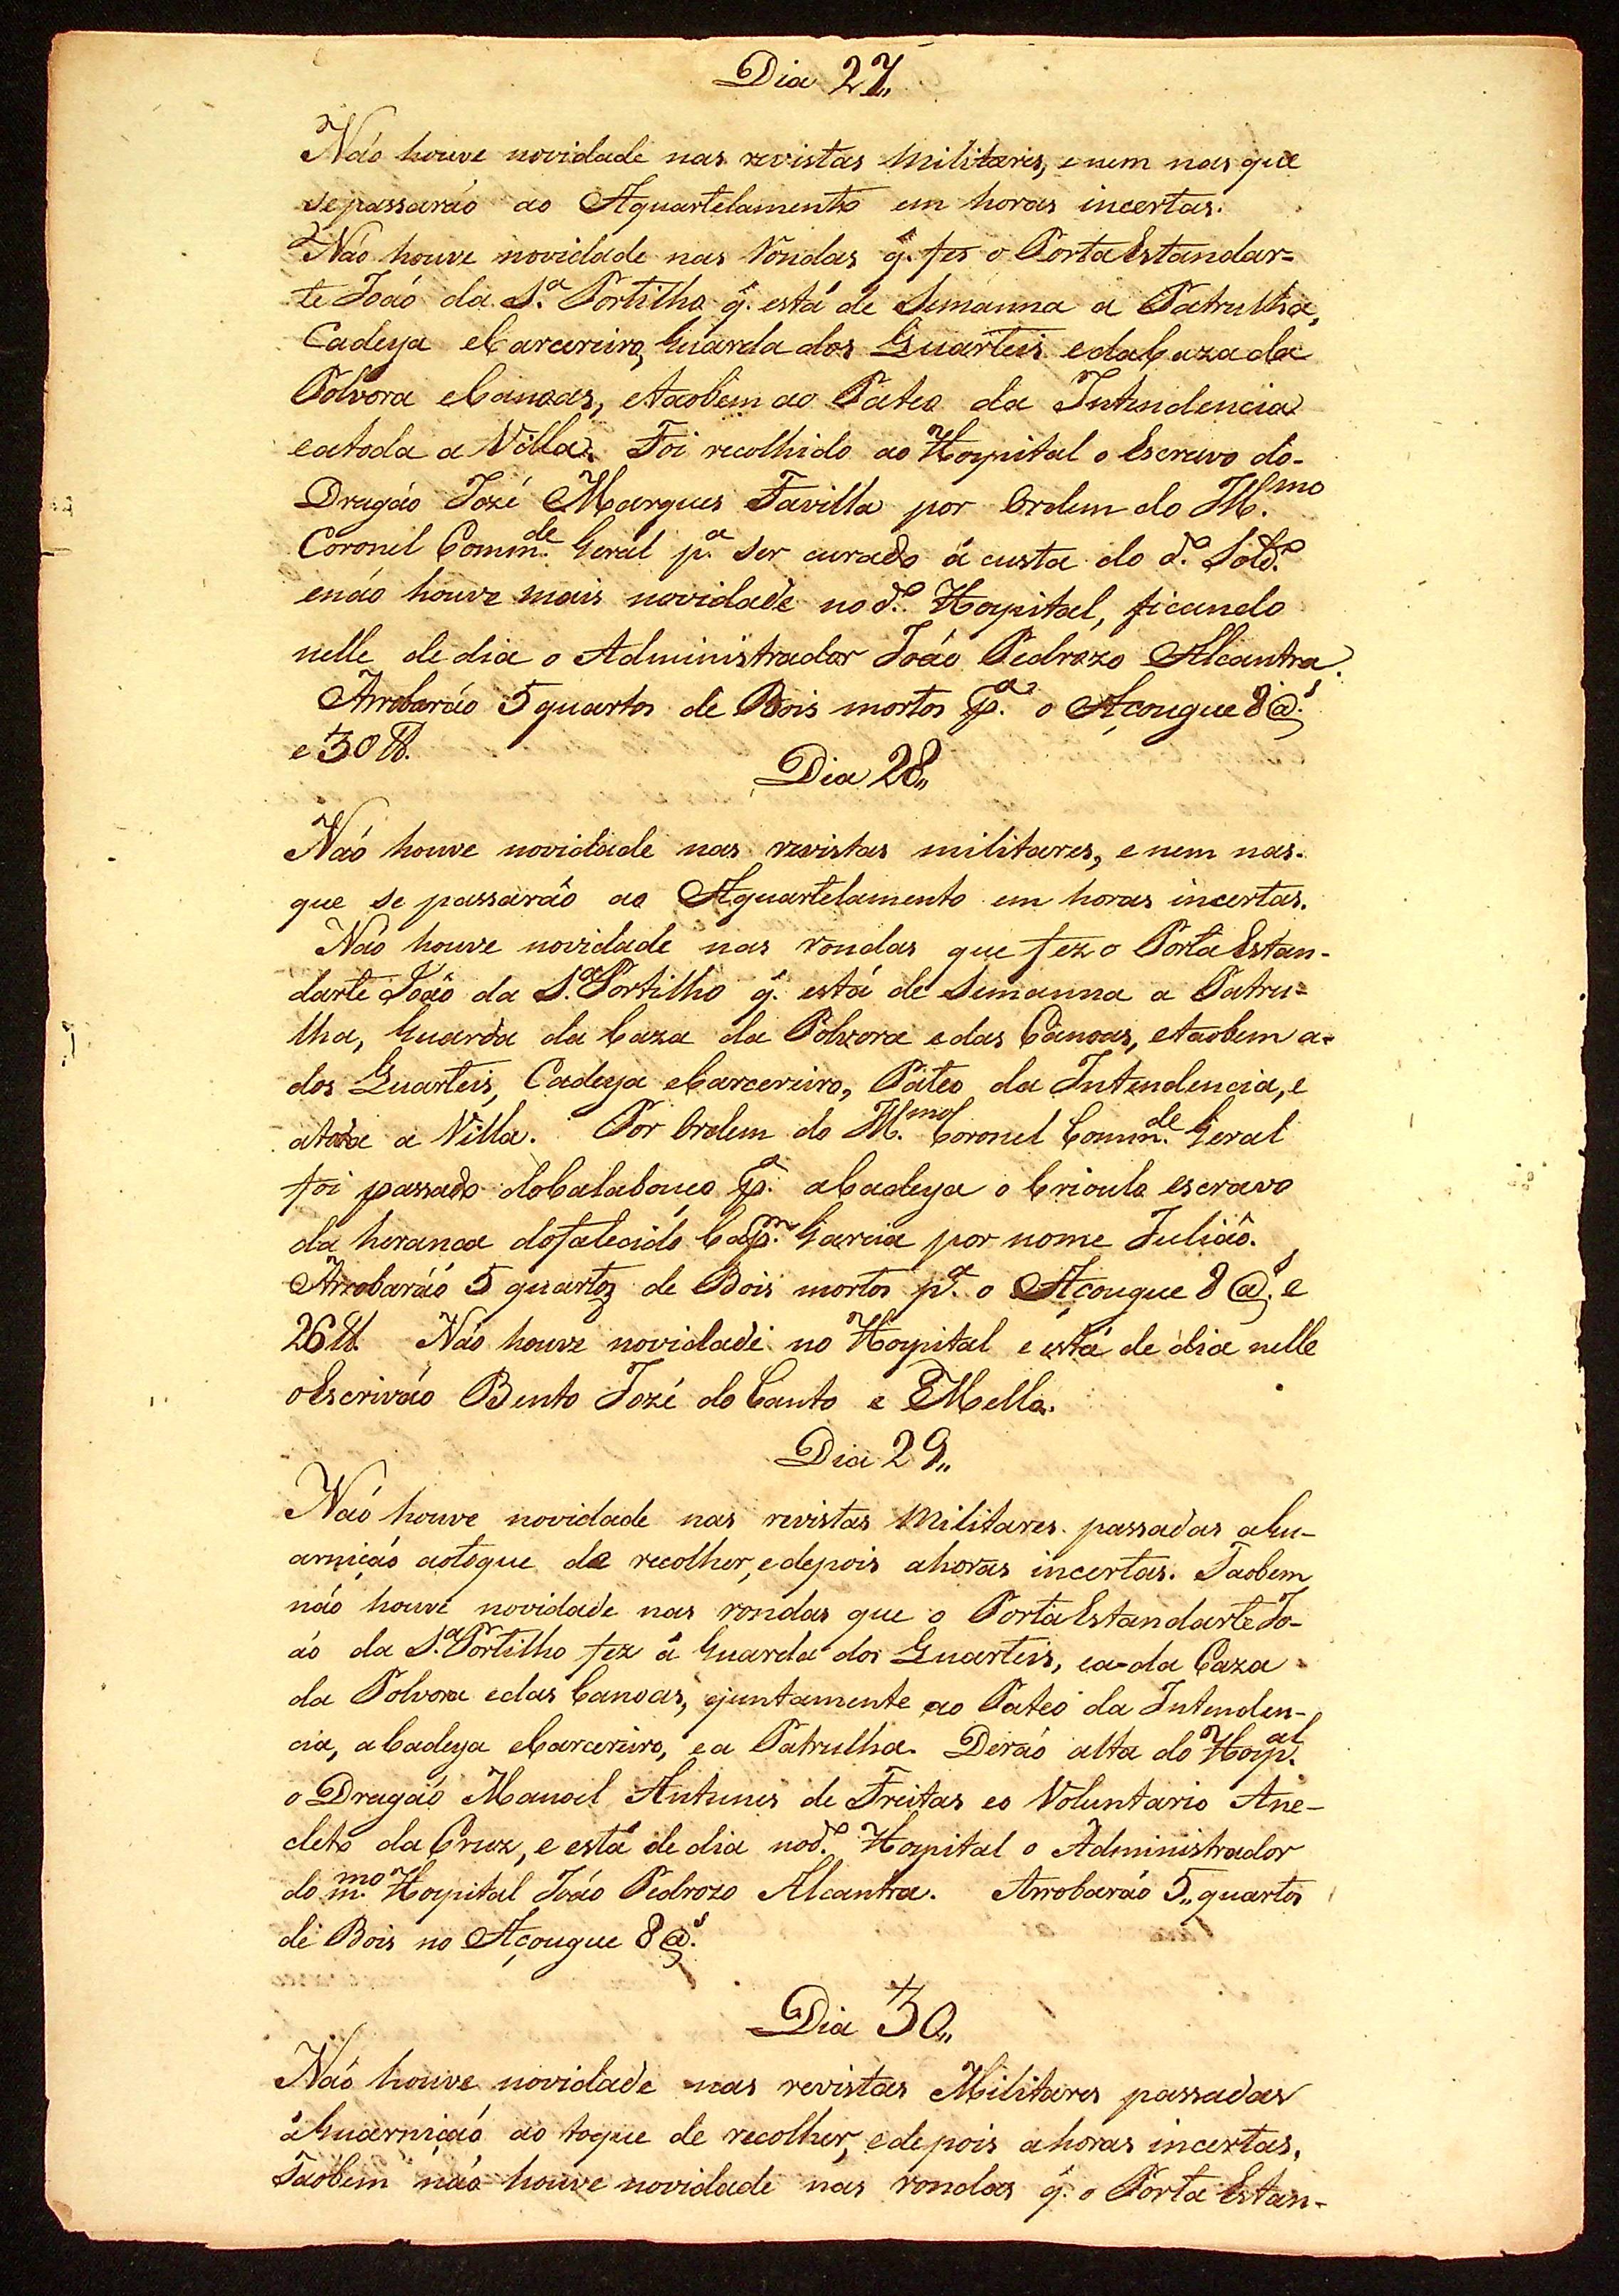 Dia 27,,
Não houve novidade nas revistas Militares, e nem nas que
se passarão ao Aquartelamento em horas incertas.
Não houve novidade nas Rondas q̃. fes o Porta Estandar=
te João da S.ª Portilho q̃. está de Semanna a Patrulha,
Cadeya e Carcereiro, Guarda dos Quarteis e da Caza da
Polvora e Canoas, e taobem ao Pateo da Intendencia
e a toda a Villa. Foi recolhido ao Hospital o Escravo do-
Dragão Jozé Marques Favilla por Ordem do Ill.mo
Coronel Comm.de Geral p.a ser curado á custa do d.o Sold.o
e não houve mais novidade no d.o Hospital, ficando
nelle de dia o Administrador João Pedrozo Alcantra.
Arrobarão 5 quartos de Bois mortos p.a o Açougue 8 @.s
e 30 ℔.
Dia 28,,
Não houve novidade nas revistas militares, e nem nas.
que se passarão ao Aquartelamento em horas incertas.
Não houve novidade nas rondas que fez o Porta Estan-
darte João da S.a Portilho q̃. está de Semanna a Patru=
lha, Guarda da Caza da Polvora e das Canoas, e taobem a-
dos Quarteis, Cadeya e Carcereiro, Pateo da Intendencia, e
a toda a Villa. Por Ordem do Ill.mo Coronel Comm.de Geral
foi passado do Calabouço p.a a Cadeya o Crioulo escravo
da herança do falecido Cap.m Garcia por nome Julião.
Arrobarão 5 quartos de Bois mortos p.a o Açougue 8 @.s e
26 ℔. Não houve novidade no Hospital e está de dia nelle
o Escrivão Bento Jozé do Canto e Mello.
Dia 29,,
Não houve novidade nas revistas Militares passadas a Gu-
arnição ao toque de recolher, e depois a horas incertas. Taobem
não houve novidade nas rondas que o Porta Estandarte Jo-
ão da S.a Portilho fez á Guarda dos Quarteis, e a da Caza
da Polvora e das Canoas, e juntamente ao Pateo da Intenden-
cia, a Cadeya e Carcereiro, e a Patrulha. Derão alta do Hosp.al
o Dragão Manoel Antunes de Freitas e o Voluntario Ane-
cleto da Cruz, e está de dia no d.o Hospital o Administrador
do m.mo Hospital João Pedrozo Alcantra. Arrobarão 5,, quartos
de Bois no Açougue 8 @.s
Dia 30,,
Não houve novidade nas revistas Militares passadas
á Guarnição ao toque de recolher, e depois a horas incertas.
Taobem não houve novidade nas rondas q̃. o Porta Estan-